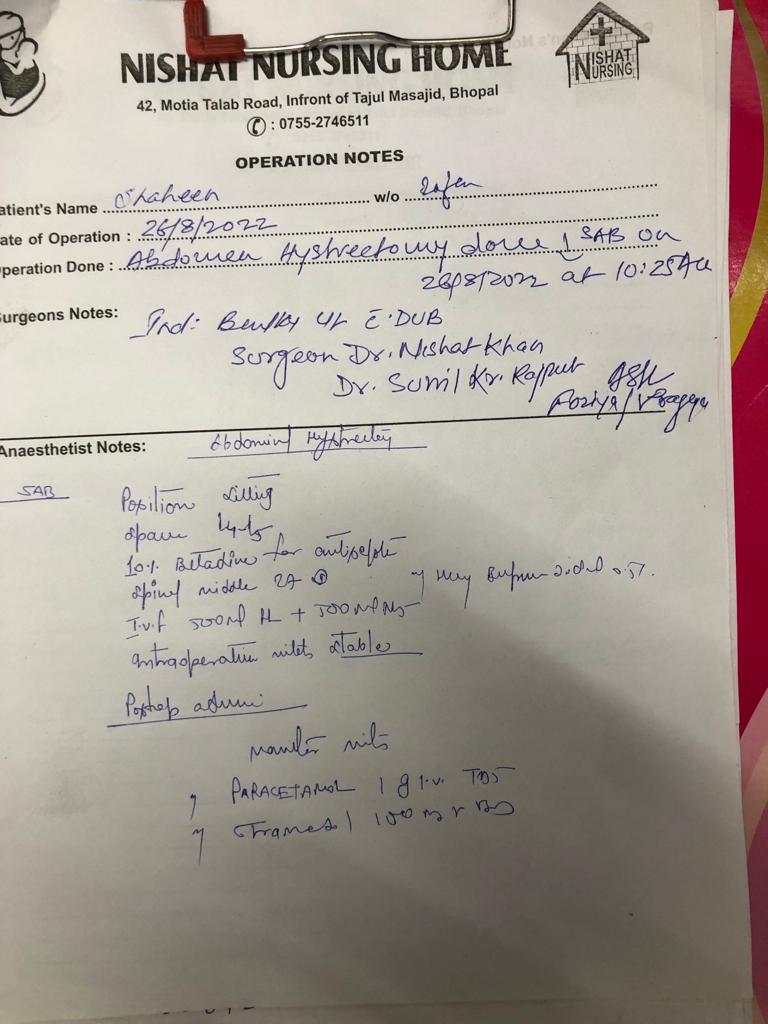 NISHAT NURSING HOME
NISHAT
NURSING
42, Motia Talab Road, Infront of Tajul Masajid, Bhopal
: 0755-2746511
OPERATION NOTES
atient's Name Shaheen w/o
ate of Operation : 26/8/2022
peration Done : Abdomen Hystreetomy done SAB on
26/8/2022 at 10:25 AM
urgeons Notes: Ind: Bulky Ut DUB
Surgeon Dr. Nishat Khan
Dr. Sunil Kr. Rajput
Foziya/
Anaesthetist Notes: Abdominl
SAB
Position sitting
space L4-L5
10% Betadine for antiseptic
spinl 27
I.v.f 500ml RL + 500ml NS
intraoperative stable
Postop
monitor
PARACETAMOL 1 g i.v. TDS
100 mg BD